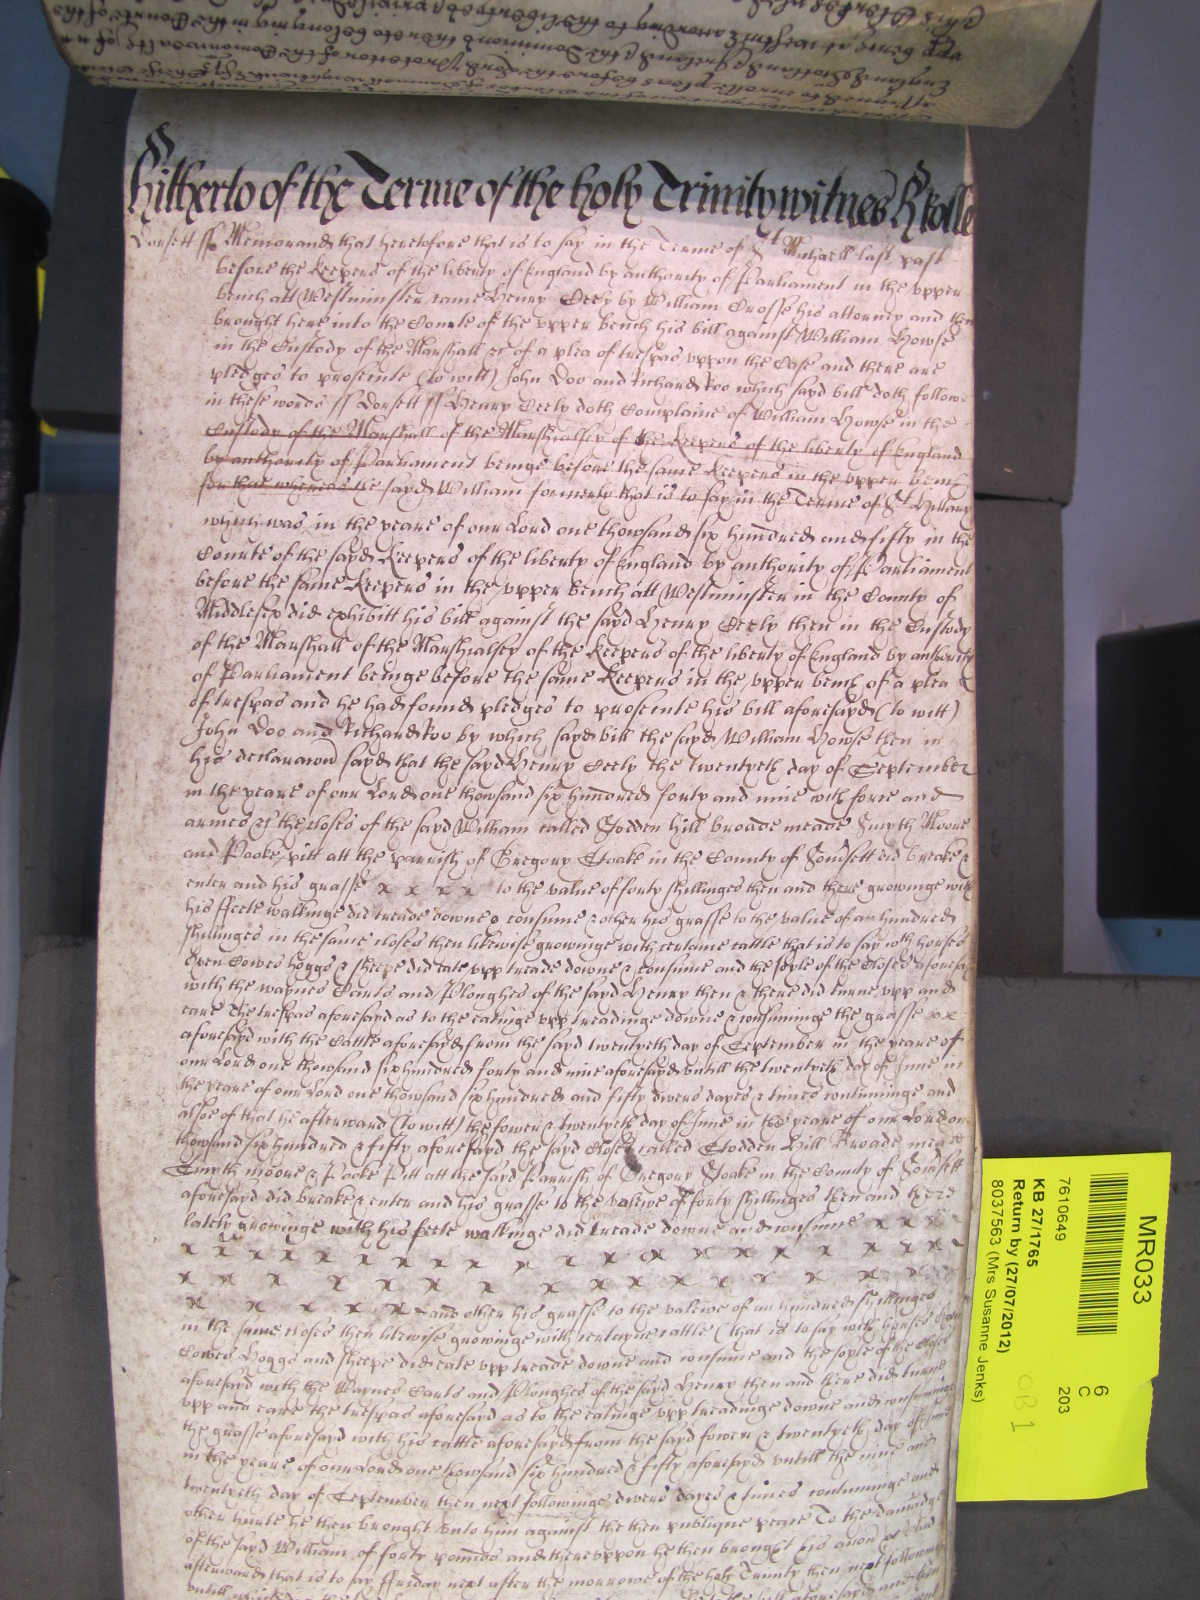 Hitherto of the Terme of the holy Trinity witnes H Rolle
Dorsett ss Memorand that heretofore that is to say in the Terme of St Michaell last past
before the Keepers of the liberty of England by authority of Parliament in the vpper
bench att Westminster came Henry Ceely by William Crosse his attorney and then
brought here into the Courte of the vpper bench his bill against William Howse
in the Custody of the Marshall &c of a plea of trespas vppon the Case and there are
pledges to prosecute (to witt) John Doo and Richard Roo which sayd bill doth followe
in these words ss Dorsett ss Henry Ceely doth Complaine of William Howse in the
Custody of the Marshall of the Marshialsey of the Keepers of the liberty of England
by authority of Parliament beinge before the same Keepers in the vpper bench
for that whereas the sayd William formerly that is to say in the Terme of St Hillary
which was in the yeare of our Lord one thowsand six hundred and fifty in the
Courte of the sayd Keepers of the liberty of England by authority of Parliament
before the same Keepers in the vpper bench att Westminster in the County of
Middlesex did exhibitt his bill against the sayd Henry Ceely then in the Custody
of the Marshall of the Marshialsey of the Keepers of the liberty of England by authority
of Parliament beinge before the same Keepers in the vpper bench of a plea
of trespas and he had found pledges to prosecute his bill aforesayd (to witt)
John Doo and Richard Roo by which sayd bill the sayd William Howse then in
his declaracon sayd that the sayd Henry Ceely the twentyeth day of September
in the yeare of our Lord one thowsand six hundred forty and nine with force and
armes &c the closes of the sayd William called Stodden Hill broade meade Smyth Moore
and Pooke pitt att the parrish of Gregory Stoake in the County of Somsett did breake &
enter and his grasse x x x x to the value of forty shillinges then and there growinge with
his ffeete walkinge did treade downe & consume & other his grasse to the value of an hundred
shillinges in the same closes then likewise growinge with certaine cattle that is to say with horses
Oxen Cowes hoggs & sheepe did eate vpp treade downe & consume and the soyle of the Closes aforesayd
with the waynes Carts and Ploughes of the sayd Henry then & there did turne vpp and
eare The trespas aforesayd as to the eatinge vpp treadinge downe & consuminge the grasse x x
aforesayd with the Cattle aforesayd from the sayd twentyeth day of September in the yeare of
our Lord one thowsand six hundred forty and nine aforesayd untill the twentyeth day of June in
the yeare of our Lord one thowsand six hundred and fifty divers dayes & times continuinge and
alsoe of that he afterward (to witt) the fower & twentyeth day of June in the yeare of our Lord one
thowsand six hundred & fifty aforesayd the sayd Closes called Stodden Hill Broade meade
Smyth moore & Pooke Pitt att the sayd Parrish of Gregory Stoake in the County of Somsett
aforesayd did breake & enter and his grasse to the valewe of forty shillinges then and there
lately growinge with his feete walkinge did treade downe and consume x x x
x x x x x x x x x x x x x x x x x
x x x x x x x x x x x x x x
x x x x x and other his grasse to the valewe of an hundred shillinges
in the same closes then likewise growinge with certayne cattle (that is to say with horses Oxen
Cowes Hoggs and sheepe did eate vpp treade downe and consume and the soyle of the Closes
aforesayd with the Waynes Carts and Ploughes of the sayd Henry then and there did turne
vpp and eare the trespas aforesayd as to the eatinge vpp treadinge downe and consuminge
the grasse aforesayd with his cattle aforesayd from the sayd fower & twentyeth day of June
in the yeare of our Lord one thowsand six hundred & fifty aforesayd untill the nine and
twentyeth day of September then next followinge divers dayes & times continuinge and
other hurte he then brought unto him against the then publique peace To the damadge
of the sayd William of forty pounds and therevppon he then brought his
afterwards that is to say ffriday next after the morrowe of the holy Trinity then next followinge
MR033
6
C
203
7610649
KB 27/1765
Return by (27/07/2012)
8037563 (Mrs Susanne Jenks)
OB 1